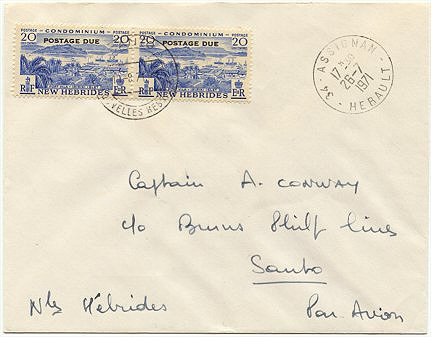 POSTAGE CONDOMINIUM POSTAGE
20 POSTAGE DUE 20
RF ER
NEW HEBRIDES
POSTAGE CONDOMINIUM POSTAGE
20 POSTAGE DUE 20
RF ER
NEW HEBRIDES
34 - ASSIGNAN - HERAULT -
17
26-7
1971
Captain A. CONWAY
c/o Burns Philp lines
Santo
Nles Hébrides
Par Avion